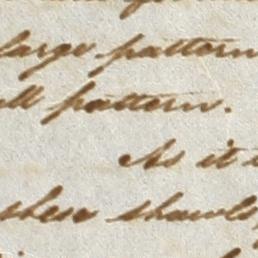 large pattern
ll pattern.
As it
these shawls,